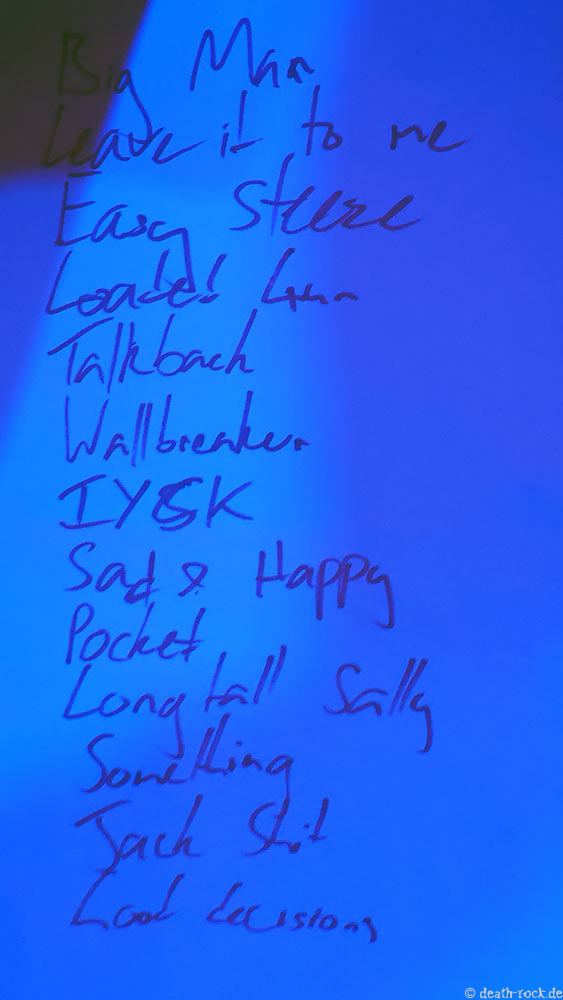 Big Man
Leave it to me
Easy Steeze
Loaded Gun
Talkback
Wallbreaker
IYSK
Sad & Happy
Pocket
Long tall Sally
Something
Jack Shit
Good decisions
© death-rock.de